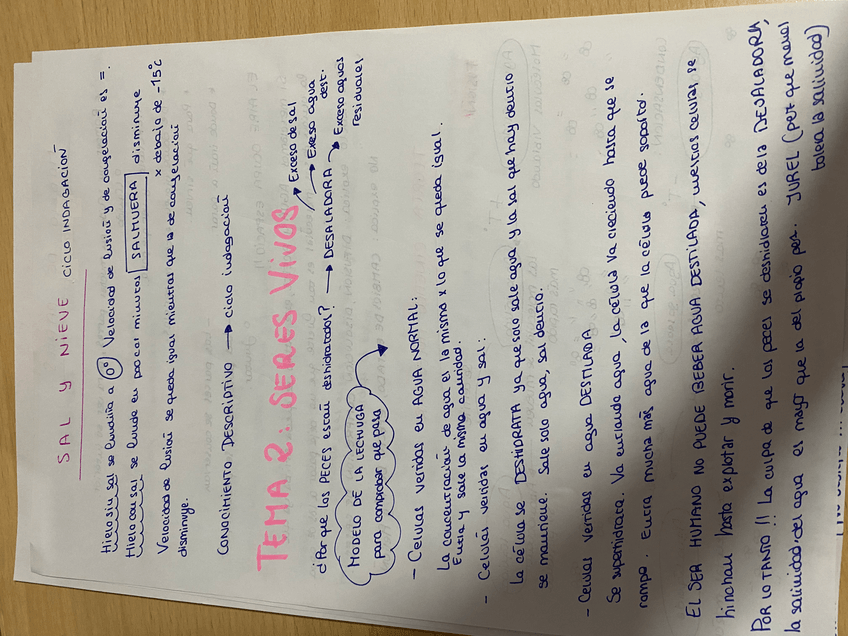 SAL Y NIEVE CICLO INDAGACIÓN
Hielo sin sal se fundiría a 0º Velocidad de fusión y de congelación es =.
Hielo con sal se funde en pocos minutos SALMUERA disminuye
x debajo de -15ºC
Velocidad de fusión se queda igual mientras que la de congelación
disminuye.
CONOCIMIENTO DESCRIPTIVO → ciclo indagación
TEMA 2: SERES VIVOS
¿Por que los PECES están deshidratados? → DESALADORA
→ Exceso de sal
→ Exceso agua
dest.
→ Exceso aguas
residuales
MODELO DE LA LECHUGA
para comprobar que pasa
- Celulas vertidas en AGUA NORMAL:
La concentración de agua es la misma x lo que se queda igual.
Entra y sale la misma cantidad.
- Celulas vertidas en agua y sal:
La célula se DESHIDRATA ya que solo sale agua y la sal que hay dentro
se mantiene. Sale solo agua, sal dentro.
- Celulas vertidas en agua DESTILADA
Se superhidrata. Va entrando agua, la célula va creciendo hasta que se
rompa. Entra mucha más agua de la que la célula puede soportar.
EL SER HUMANO NO PUEDE BEBER AGUA DESTILADA, nuestras celulas se
hincharían hasta explotar y morir.
POR LO TANTO!! La culpa de que los peces se deshidraten es de la DESALADORA,
la salinidad del agua es mayor que la del propio pez. JUREL (pez que menos
tolera la salinidad)